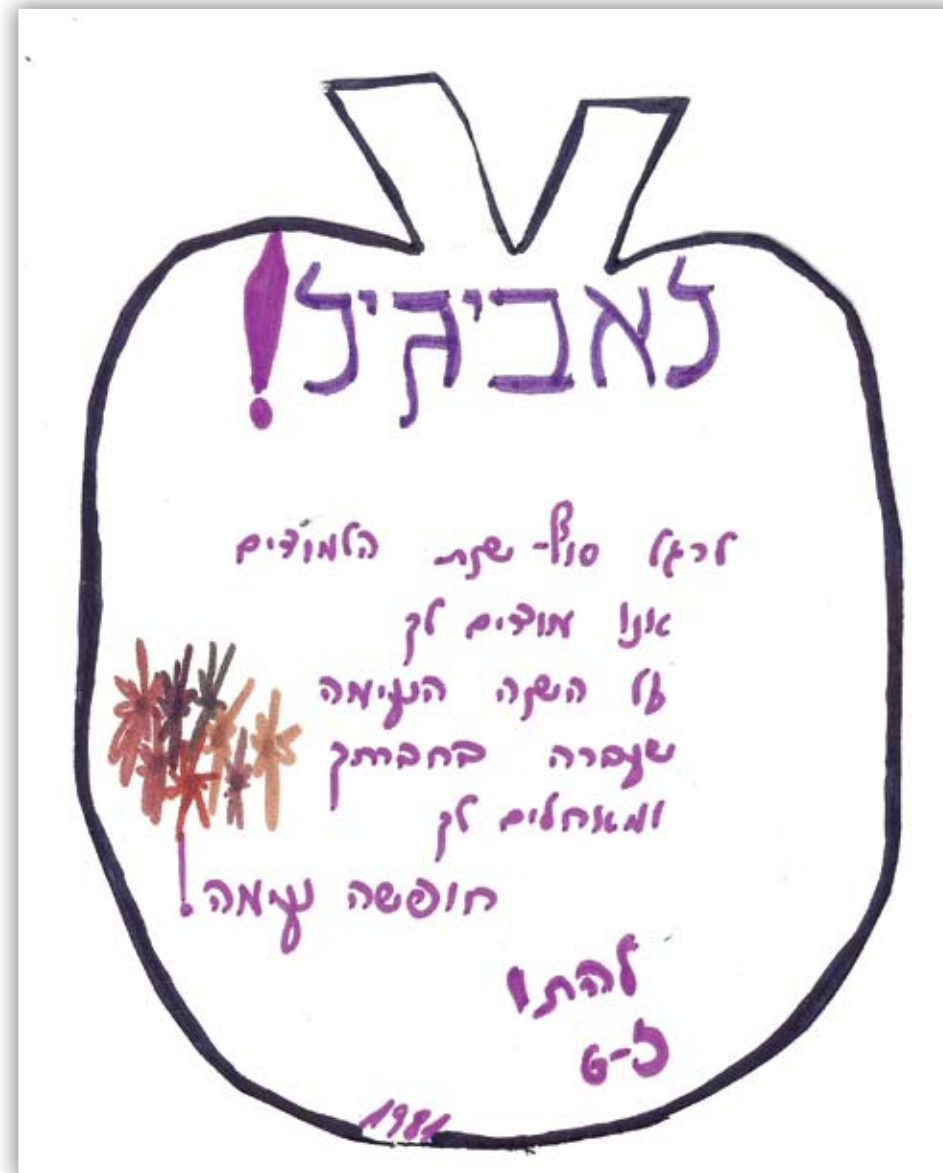 לאביגיל!
לרגל סוף-שנת הלמודים
אנו מודים לך
על השנה הנעימה
שעברה בחברתך
ומאחלים לך
חופשה נעימה!
להת'
ט-5
1981